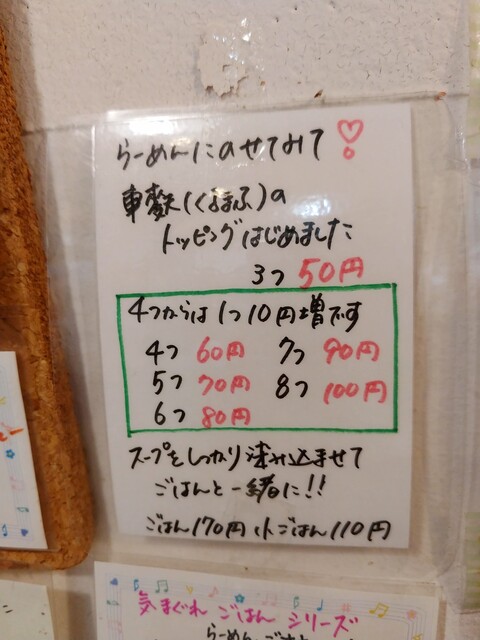 らーめんにのせてみて♡
車麩(くるまふ)の
トッピングはじめました
3つ 50円
4つからは1つ10円増です
4つ 60円 7つ 90円
5つ 70円 8つ 100円
6つ 80円
スープをしっかり染み込ませて
ごはんと一緒に!!
ごはん170円 小ごはん110円
気まぐれ ごはん シリーズ